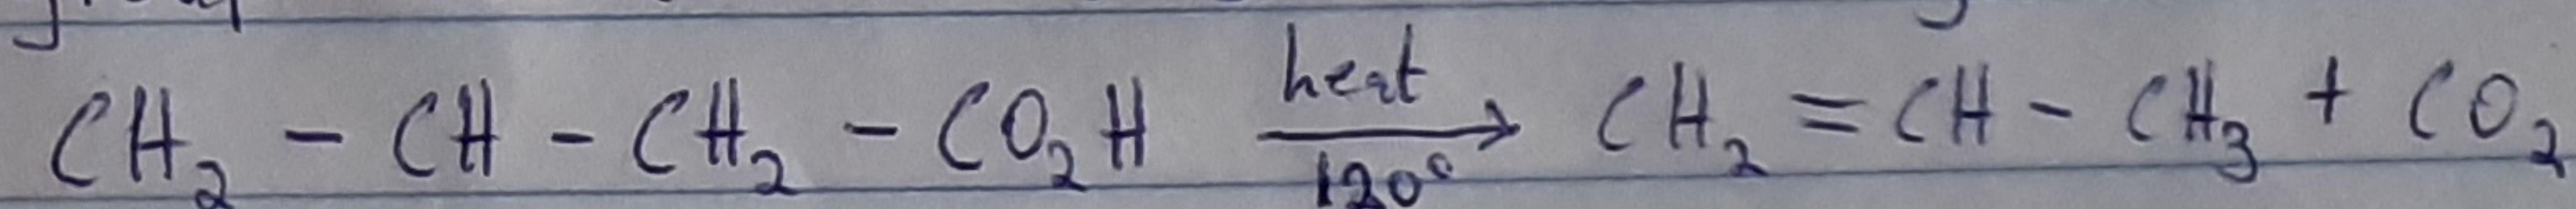 CH₂ - CH - CH₂ - CO₂H heat/120° → CH₂ = CH - CH₃ + CO₂